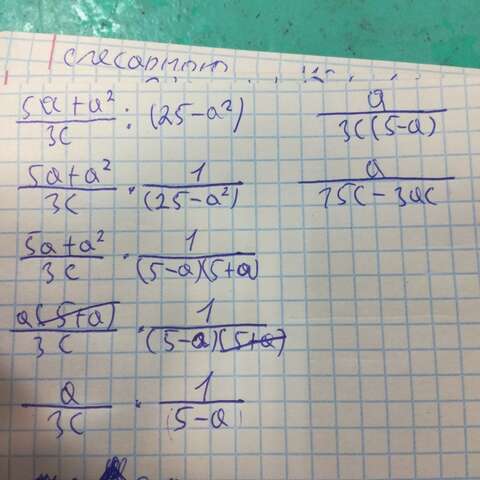 слесарным
(5a+a²)/3c : (25-a²)
(5a+a²)/3c · 1/(25-a²)
(5a+a²)/3c · 1/((5-a)(5+a))
a(5+a)/3c · 1/((5-a)(5+a))
a/3c · 1/(5-a)
a/(3c(5-a))
a/(15c-3ac)